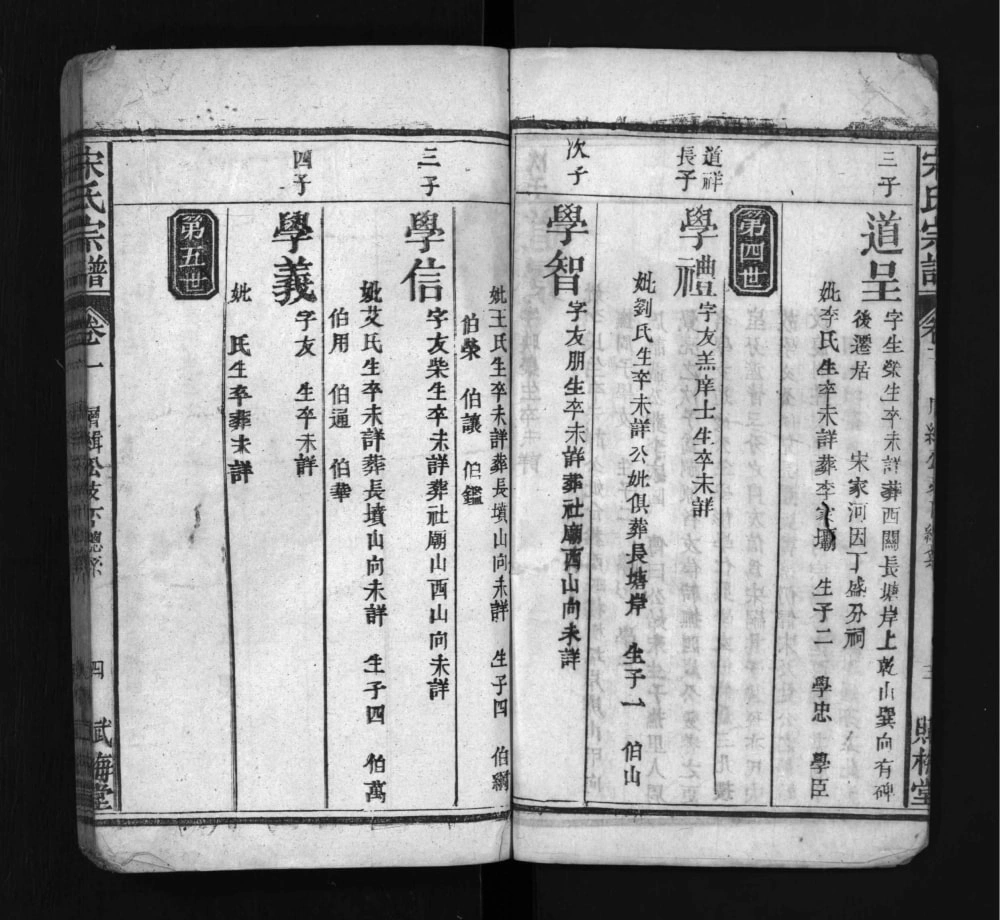 三子
道呈
字生榮生卒未詳葬西關長塘岸上乾山巽向有碑
後遷居 宋家河因丁盛分祠
妣李氏生卒未詳葬李家塥 生子二 學忠 學臣
第四世
道祥
長子
學禮
字友羔庠士生卒未詳
妣劉氏生卒未詳公妣俱葬長塘岸 生子一 伯山
次子
學智
字友朋生卒未詳葬社廟西山向未詳
妣王氏生卒未詳葬長墳山向未詳 生子四 伯綱
伯榮 伯讓 伯鑑
三子
學信
字友柴生卒未詳葬社廟山西山向未詳
妣艾氏生卒未詳葬長墳山向未詳 生子四 伯萬
伯用 伯通 伯華
四子
學義
字友 生卒未詳
妣 氏生卒葬未詳
第五世
宋氏宗譜
卷一
四
賦梅堂